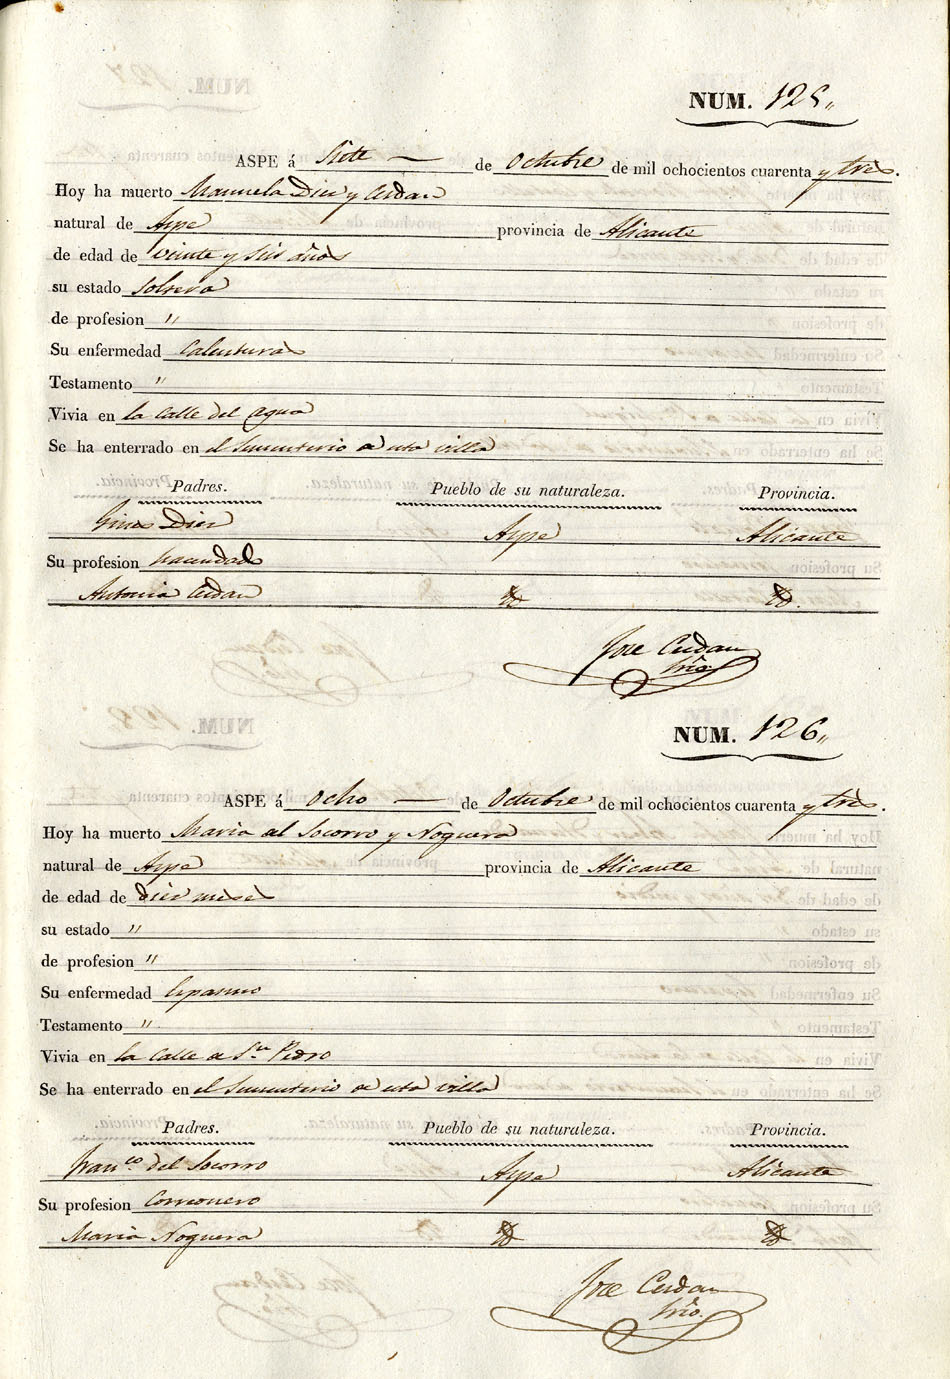 NUM. 125,,
ASPE á Siete — de Octubre de mil ochocientos cuarenta y tres.
Hoy ha muerto Manuela Diez y Cerdan
natural de Aspe provincia de Alicante
de edad de veinte y seis años
su estado Soltera
de profesion "
Su enfermedad Calenturas
Testamento "
Vivia en la Calle del Agua
Se ha enterrado en el Sementerio de esta villa
Padres. Pueblo de su naturaleza. Provincia.
Gines Diez Aspe Alicante
Su profesion hacendado
Antonia Cerdan
Jose Cerdan
Srio.
NUM. 126,,
ASPE á Ocho — de Octubre de mil ochocientos cuarenta y tres.
Hoy ha muerto Maria del Socorro y Noguera
natural de Aspe provincia de Alicante
de edad de diez meses
su estado "
de profesion "
Su enfermedad Espasmo
Testamento "
Vivia en la Calle de Sn. Pedro
Se ha enterrado en el Sementerio de esta villa
Padres. Pueblo de su naturaleza. Provincia.
Franco. del Socorro Aspe Alicante
Su profesion
Maria Noguera
Jose Cerdan
Srio.